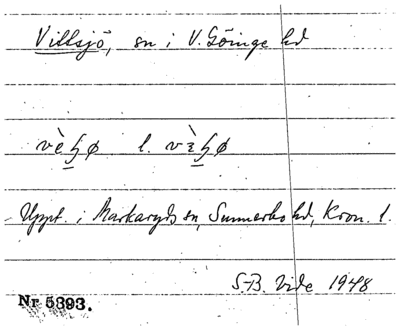 Vittsjö, sn i V. Göinge hd
l.
Uppt. i Markaryds sn, Sunnerbo hd, Kron. l.
S-B. Vide 1948
Nr 5393.